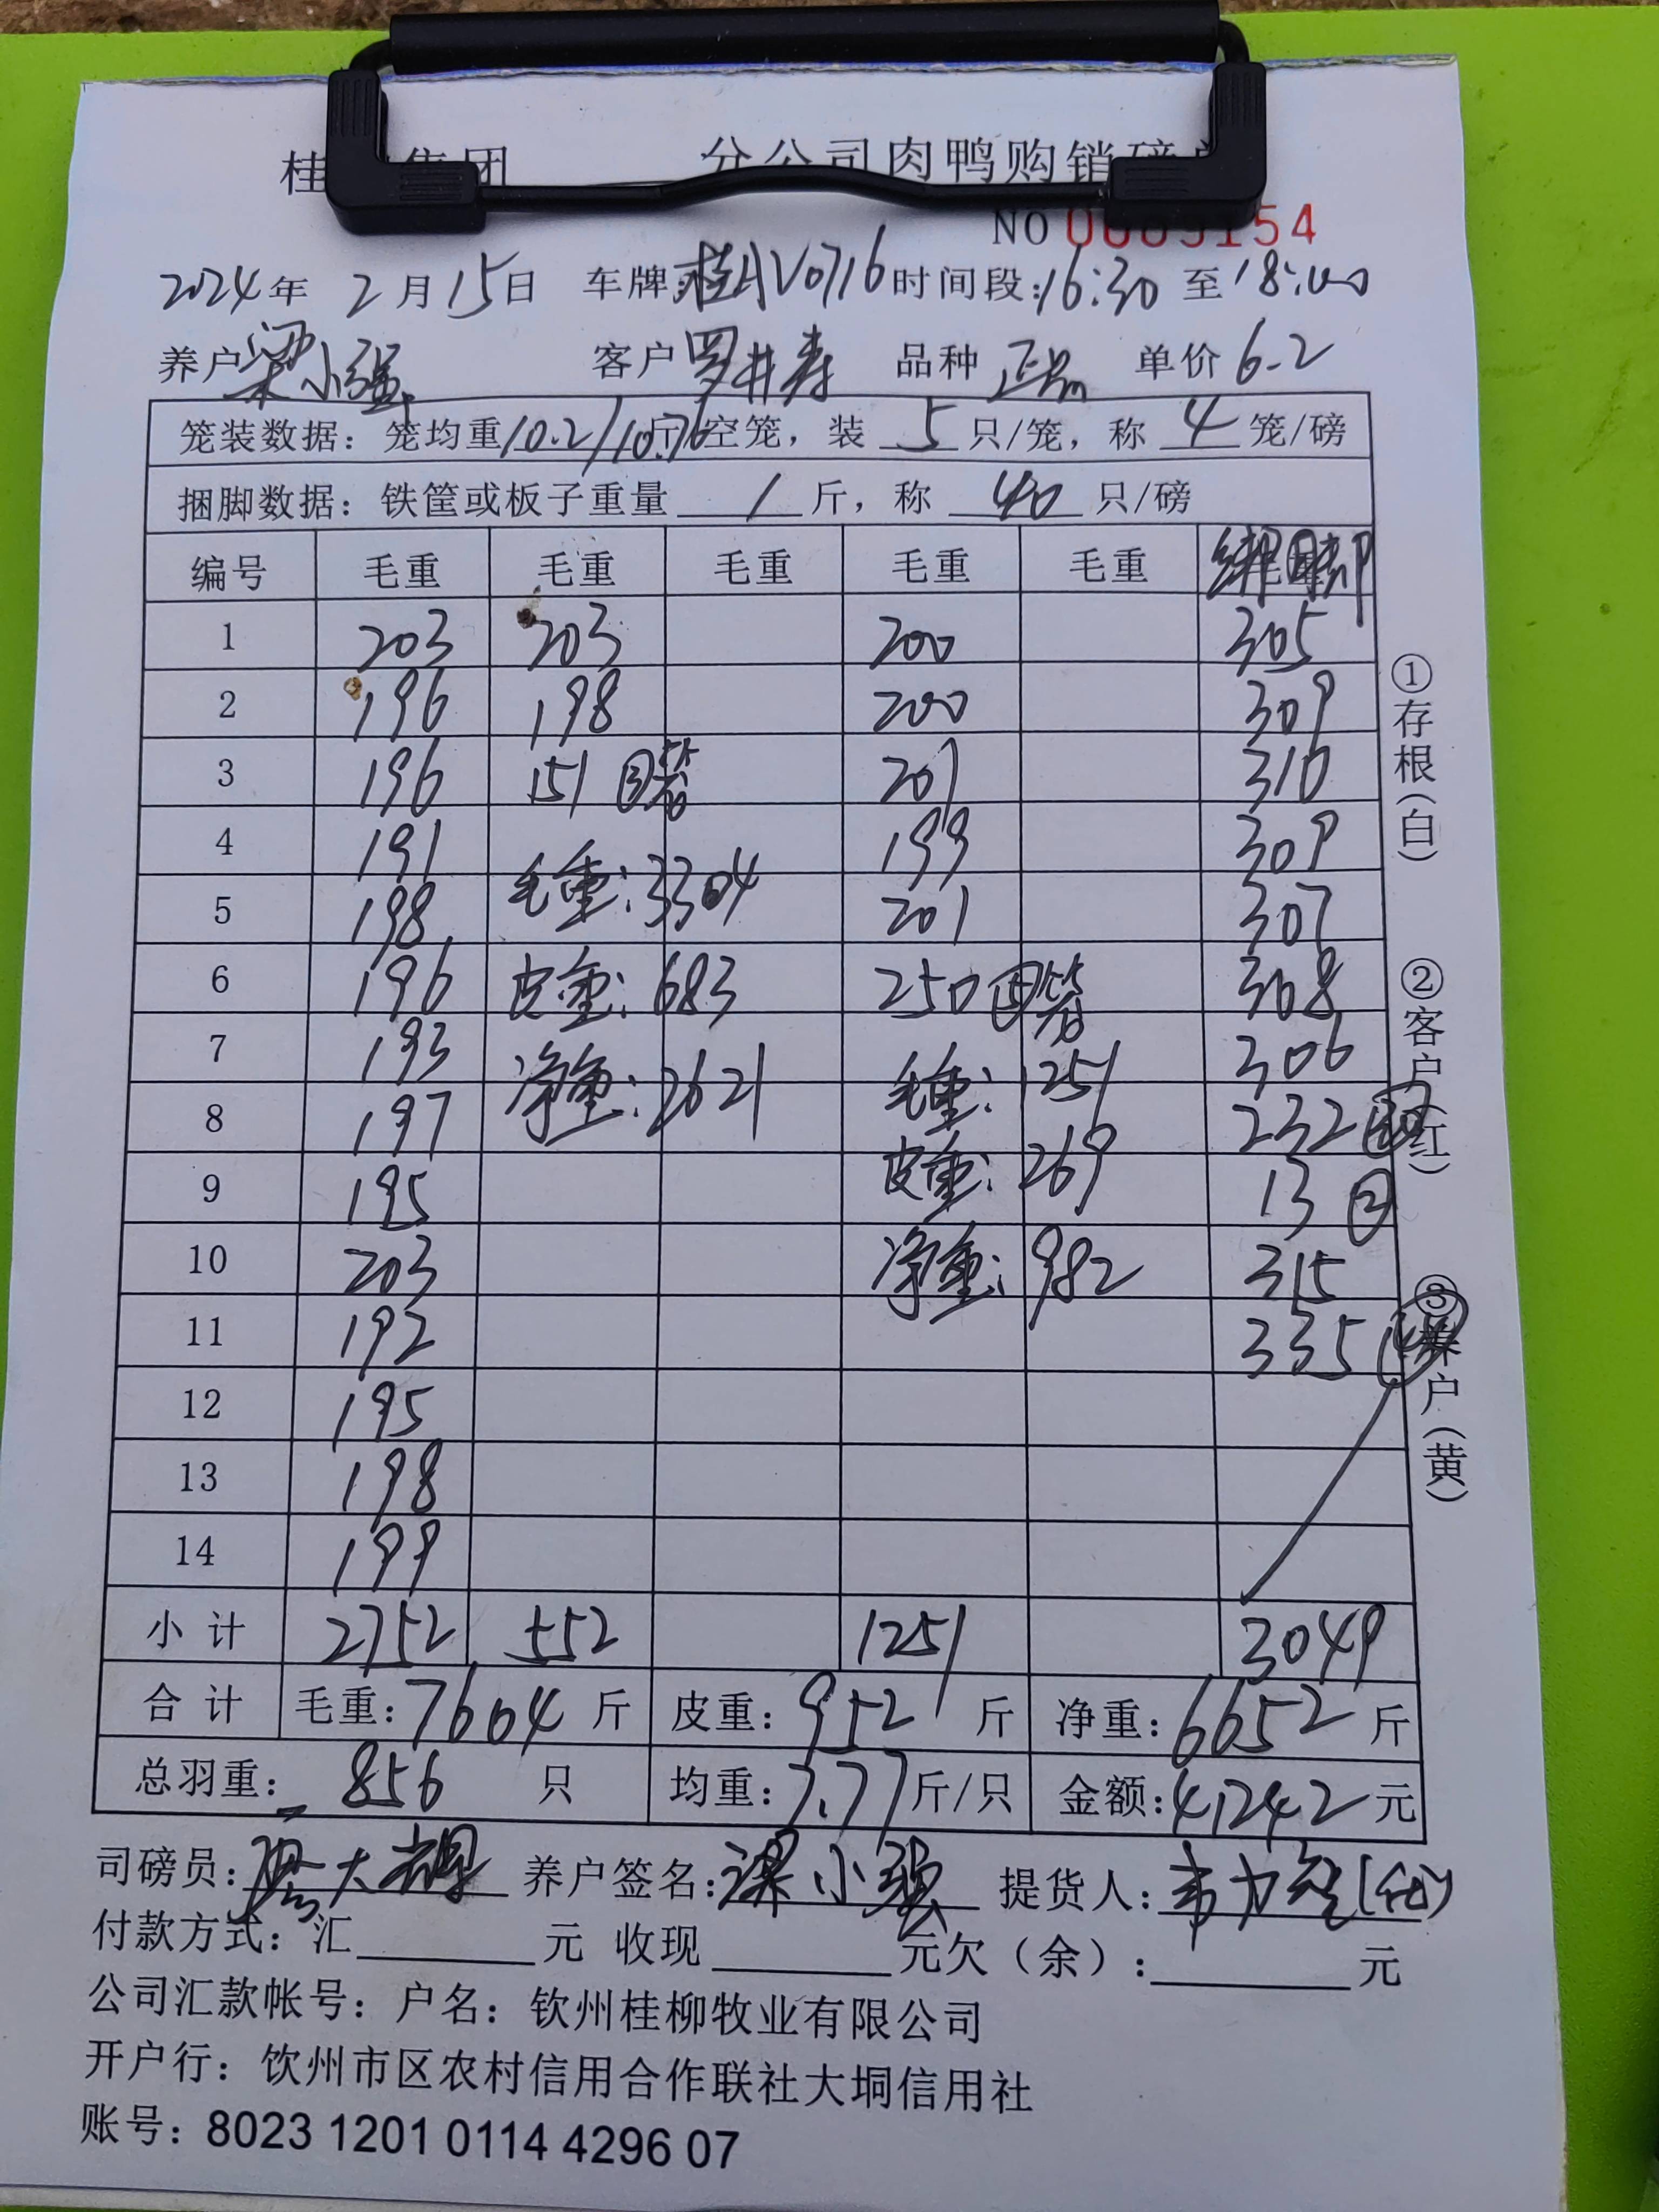 桂 集团 分公司肉鸭购销磅
NO 0009154
2024年 2月15日 车牌:桂AV0716 时间段:16:30 至 18:00
养户 梁小强 客户 罗井寿 品种 正品 单价 6.2
笼装数据：笼均重10.21/10.76斤/空笼，装 5 只/笼，称 4 笼/磅
捆脚数据：铁筐或板子重量 1 斤，称 40 只/磅
编号 毛重 毛重 毛重 毛重 毛重 绑脚
1 203 203 200 305
2 196 198 200 309
3 196 151 ③笼 201 310
4 191 199 309
5 198 毛重:3304 201 307
6 196 皮重:683 250 ⑤笼 308
7 193 净重:2621 毛重:1251 306
8 197 皮重:269 232 ㉚
9 195 13 ②
10 203 净重:982 315
11 192 335
12 195
13 198
14 199
小计 2752 552 1251 3049
合计 毛重:7604 斤 皮重:952 斤 净重:6652斤
总羽重: 856 只 均重:7.77斤/只 金额:41242元
司磅员: 大 养户签名:梁小强 提货人:
付款方式：汇 元 收现 元欠（余）: 元
公司汇款帐号：户名：钦州桂柳牧业有限公司
开户行：饮州市区农村信用合作联社大垌信用社
账号：8023 1201 0114 4296 07
①存根（白）
②客户（红）
③养户（黄）